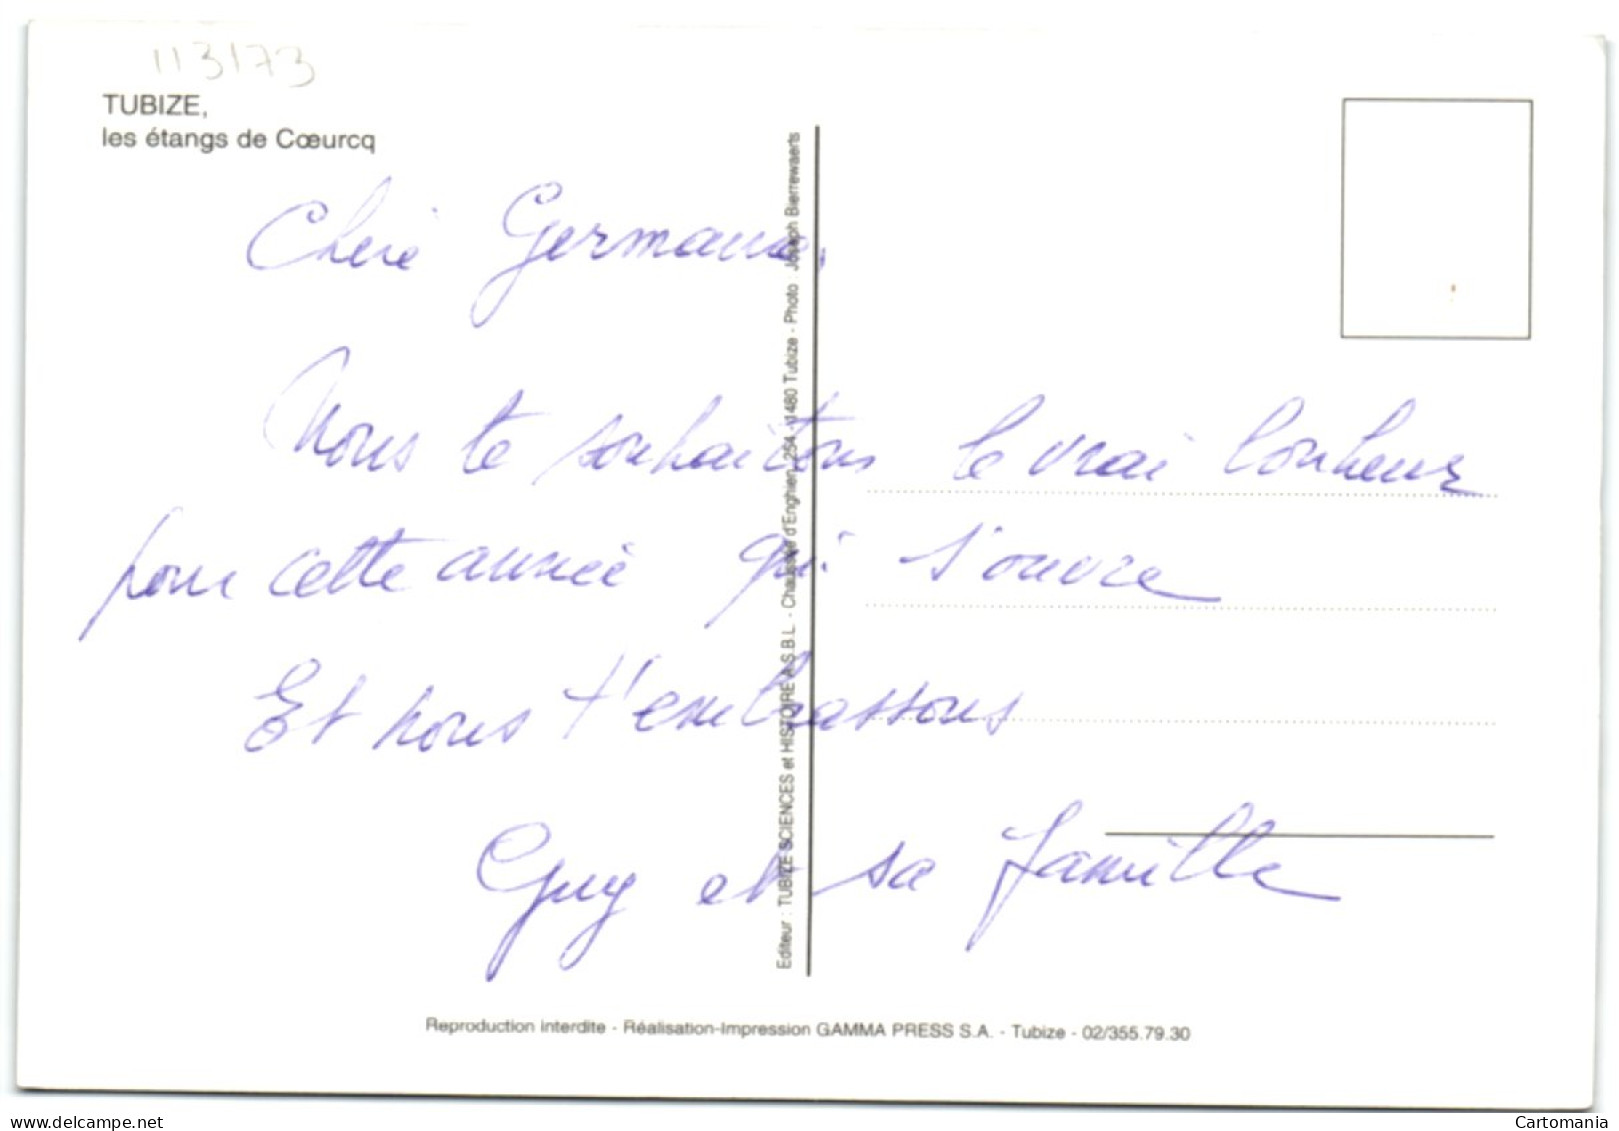 113173
TUBIZE,
les étangs de Cœurcq
Cheré Germaine,
Nous te souhaitons le vrai bonheur
pour cette année qui s'ouvre
Et nous t'embrassons
Guy et sa famille
Editeur : TUBIZE SCIENCES et HISTOIRE A.S.B.L. - Chaussée d'Enghien, 254 - 1480 Tubize - Photo : Joseph Bierrewaerts
Reproduction interdite - Réalisation-Impression GAMMA PRESS S.A. - Tubize - 02/355.79.30
delcampe.net
Cartomania